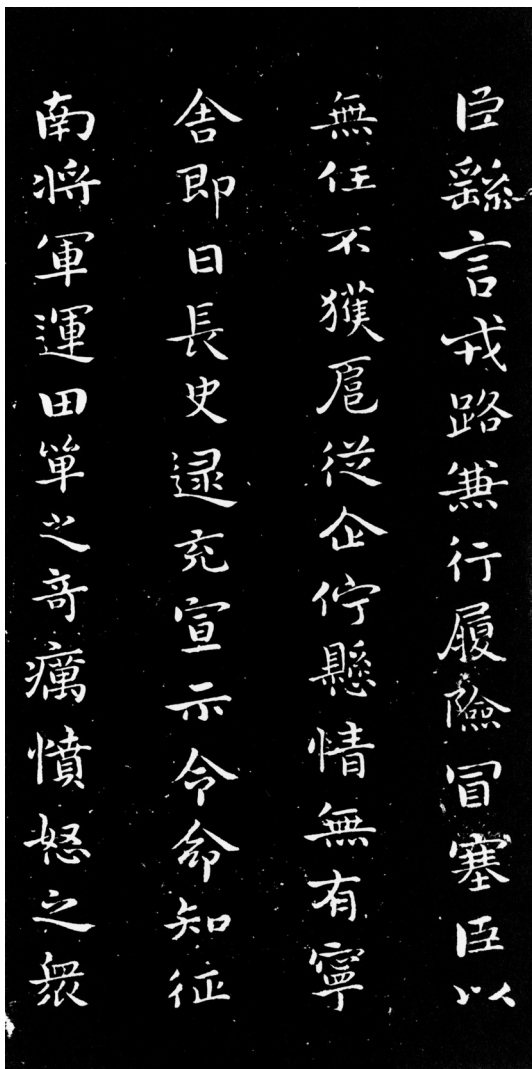 臣繇言戎路兼行履險冒塞臣以
無任不獲扈從企佇懸情無有寧
舍即日長史逯充宣示令命知征
南將軍運田單之奇癘憤怒之衆